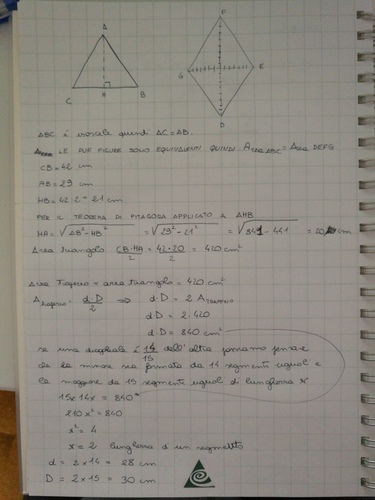 A
C H B
F
G E
D
ABC è isoscele quindi AC=AB.
LE DUE FIGURE SONO EQUIVALENTI QUINDI Area ABC = Area DEFG
CB=42 cm
AB=29 cm
HB=42:2=21 cm
PER IL TEOREMA DI PITAGORA APPLICATO A AHB
HA=√AB²-HB² =√29²-21² =√841-441 =20 cm
Area triangolo CB·HA/2 = 42·20/2 = 420 cm²
Area rombo = area triangolo = 420 cm²
d·D/2 ⇒ d·D = 2 A
d·D = 2·420
d·D = 840 cm²
se una diagonale è 14/15 dell'altra possiamo pensare
che la minore sia formata da 14 segmenti uguali e
la maggiore da 15 segmenti uguali di lunghezza x
15x·14x = 840
210 x² = 840
x² = 4
x = 2 lunghezza di un segmento
d = 2×14 = 28 cm
D = 2×15 = 30 cm